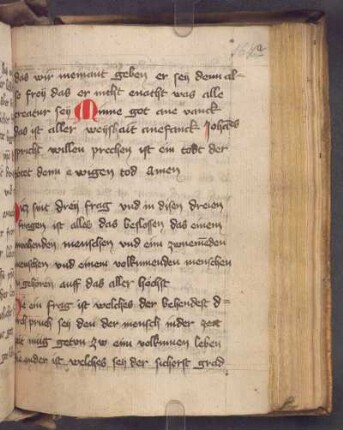 das wir niemant geben er sey denn al-
so frey das er nicht enacht was alle
creatur sey Minne got ane wanck
das ist aller weyshait anefanck Johanes
spricht willen prechen ist ein tott der
tötet denn ewigen tod Amen
Diz sint drey frag und in disen dreien
fragen ist alles das beslosen das einem
anhebenden menschen und eim zunemenden
menschen und einem volkumenden menschen
zu gehoren auff das aller höchst
Die ein frag ist welches der behendest
pruch sey den der mensch in der zeit
mug getun zw eim volkumen leben
Die ander ist welches sey der sicherst grad